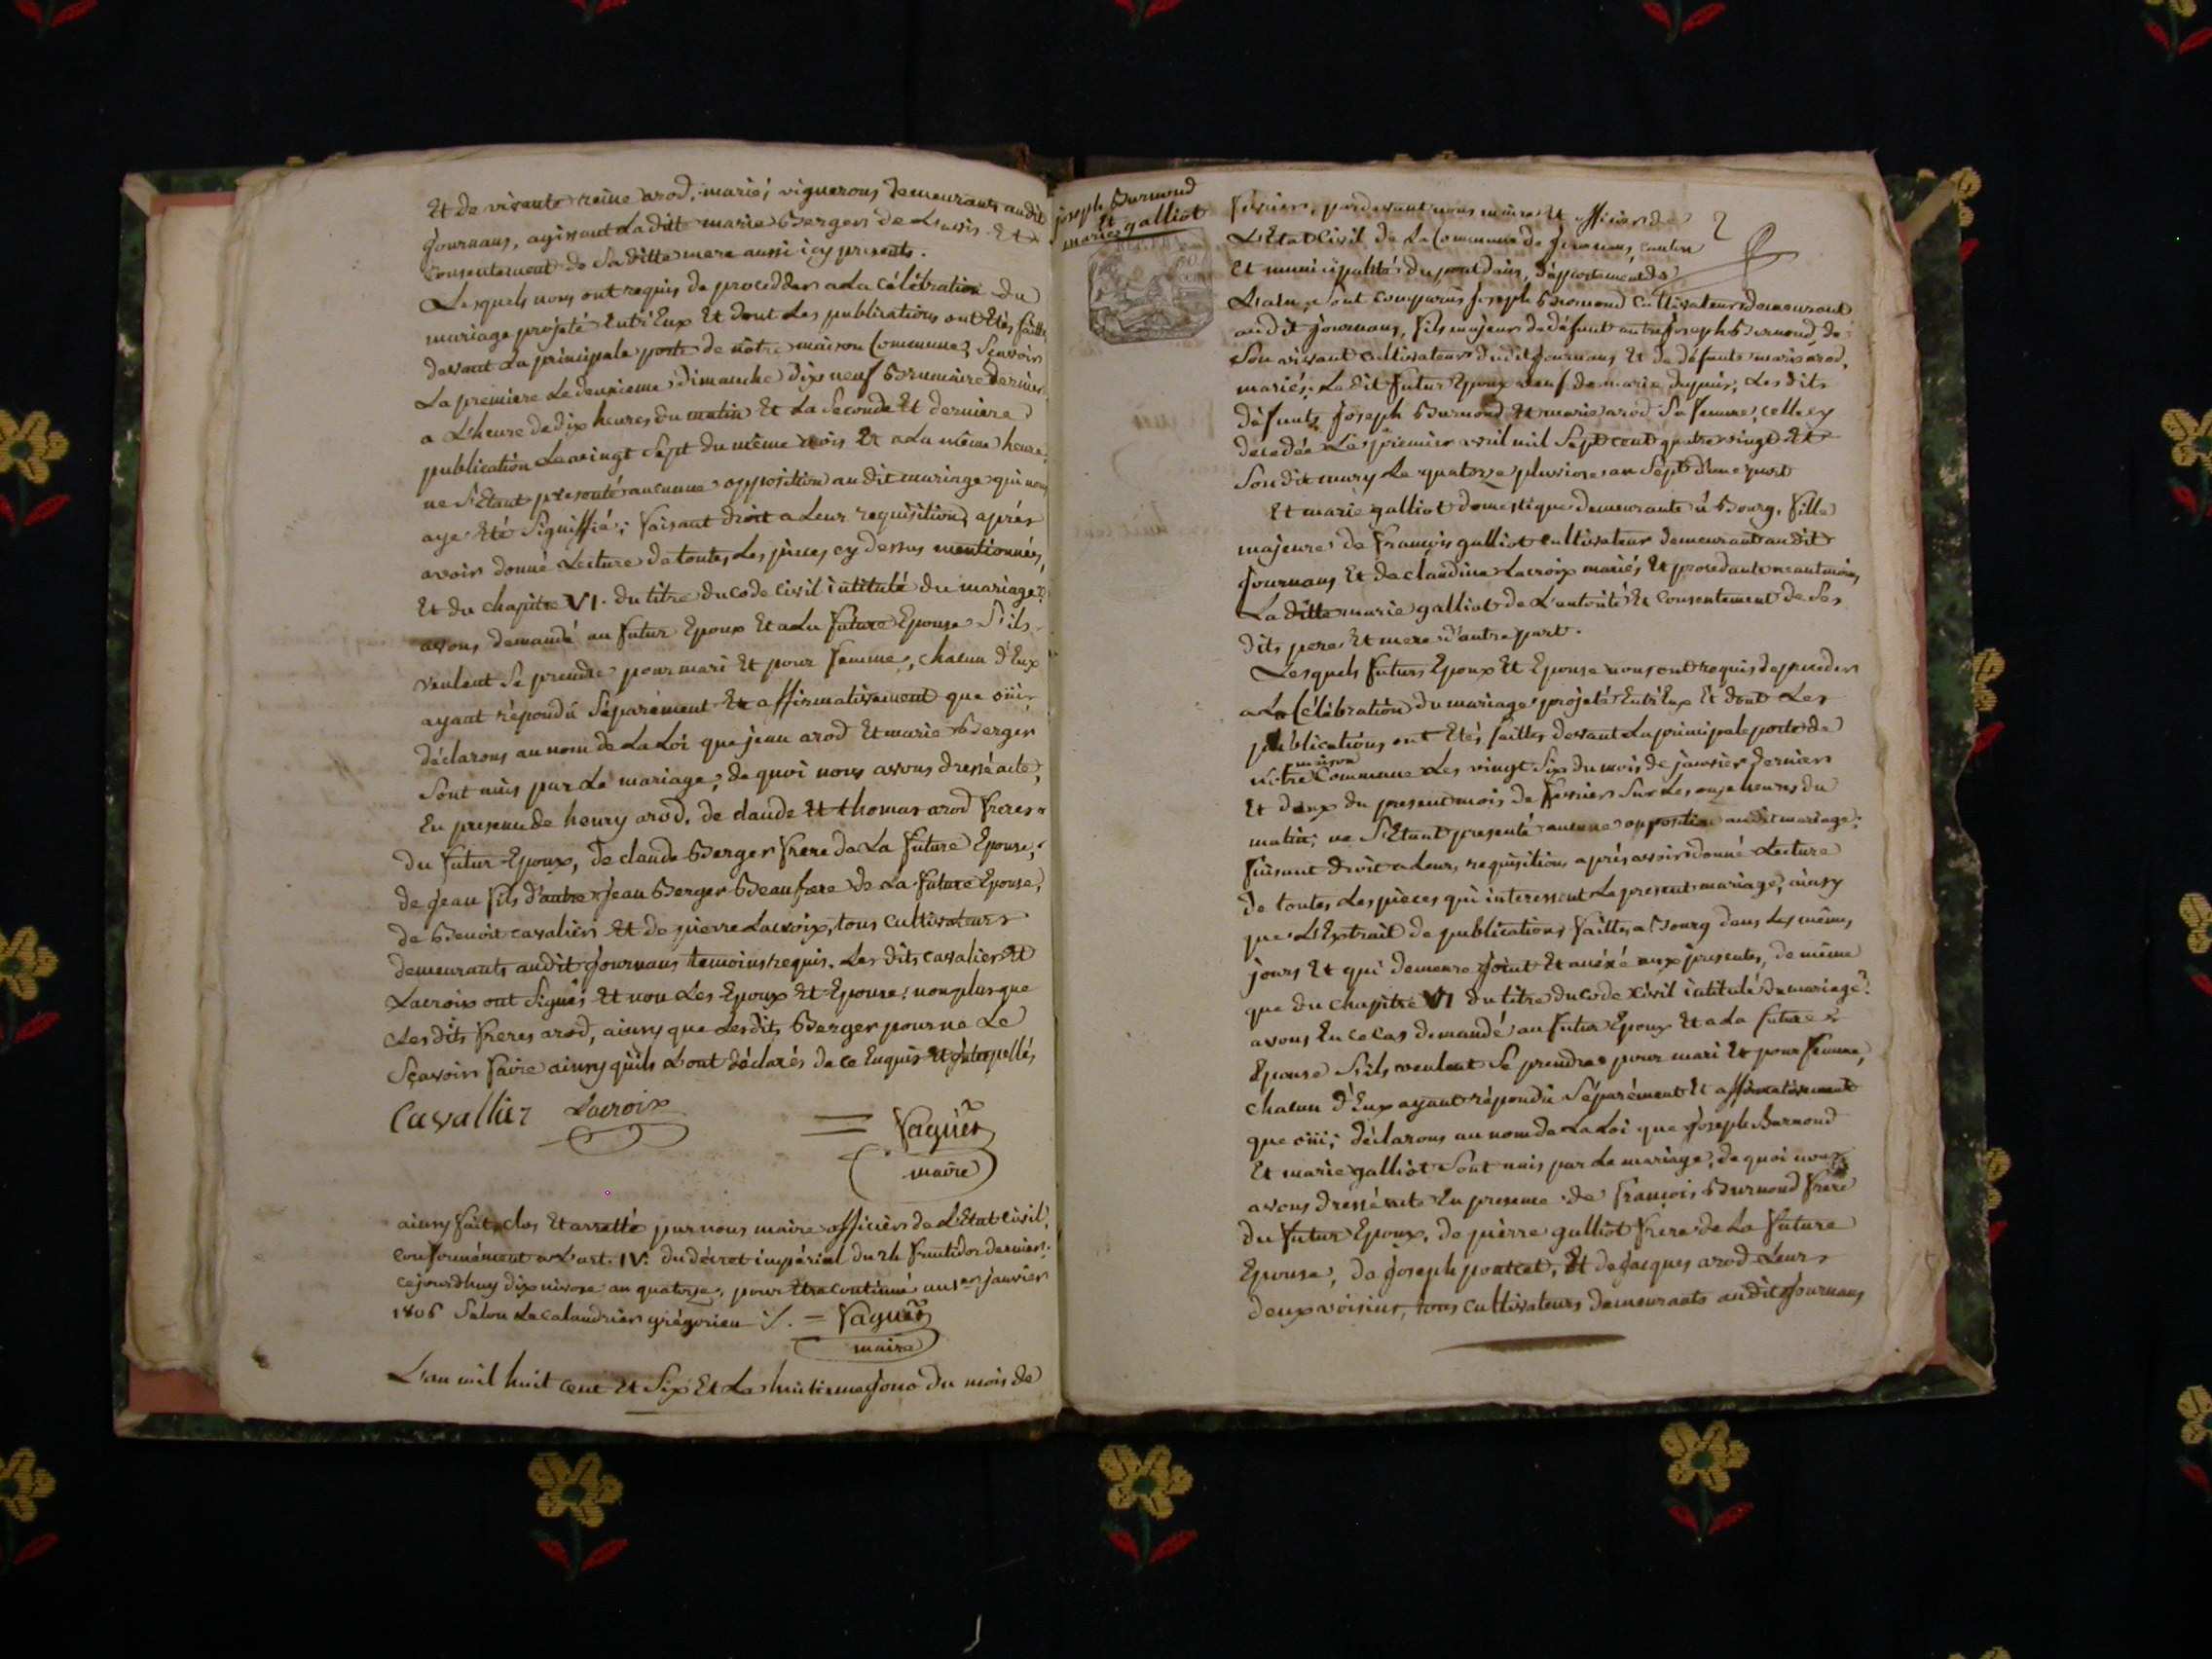 Et de vivante reine arod, mariés vignerons demeurants audit
Journans, agissant Laditt marie Berger de L'avis Et
Consentement de Saditte mere aussi icy presente.
Lesquels nous ont requis de procedder a La célébration du
mariage projeté Entr'Eux Et dont Les publications ont Etés faitte
devant La principale porte de nôtre maison Commune; Sçavoir
La premiere Le deuxieme dimanche dix neuf Brumaire dernier
a L'heure de dix heures du matin Et La Seconde Et derniere
publication Le vingt Sept du même mois Et a La même heure,
ne S'Etant presenté aucune opposition au dit mariage qui nous
aye Eté Signiffié; faisant droit a Leur requisition, aprés
avoir donné Lecture de toutes Les pieces cy dessus mentionnées,
Et du chapitre VI. du titre du code Civil intitulé du mariage?
avons demandé au futur Epoux Et a La future Epouse S'ils
veulent Se prendre pour mari Et pour femme, chacun d'Eux
ayant répondû Séparément Et affirmativement que oüi,
déclarons au nom de La Loi que jean arod Et marie Berger
Sont unis par Le mariage; de quoi nous avons dressé acte,
En presence de henry arod, de claude Et thomas arod freres
du futur Epoux, de claude Berger frere de La future Epouse,
de Jean fils d'autre Jean Berger Beaufrere de La future Epouse,
de Benoit cavalier Et de pierre Lacroix, tous cultivateurs
demeurants audit Journans temoins requis. Les dits cavalier Et
Lacroix ont Signés Et non Les Epoux Et Epouse; non plus que
Lesdits freres arod, ainsy que Lesdits Berger pour ne Le
Sçavoir faire ainsy qu'ils L'ont déclarés de ce Enquis Et interpellés
Cavallier Lacroix = Vaguër
maire
ainsy fait, clos Et arretté par nous maire officier de L'Etat Civil,
conformément a L'art. IV. du décret impérial du 24 fructidor dernier.
cejourdhuy dix nivose an quatorze, pour Etre continué au 1er janvier
1806 Selon Le calandrier grégorien ./. = Vaguër
maire
L'an mil huit cent Et Six Et Le huitieme Jour du mois de
joseph Burnond
Et
marie galliot
fevrier, pardevant nous maire Et officier de 2
L'Etat Civil de La Commune de Journans, canton
Et municipalité du pont dain, département de
L'ain, Sont comparus Joseph Burnond Cultivateur demeurant
audit Journans, fils majeur de défunt autre Joseph Burnond, de
Son vivant cultivateur dudit Journans Et de défunte marie arod,
mariés; Ledit futur Epoux veuf de marie dupuis; Les dits
défunts Joseph Burnond Et marie arod Sa femme, celle cy
decedée Le premier avril mil Sept cent quatre vingt Et
Son dit mary Le quatorze pluviose an Sept d'une part
Et marie galliot domestique demeurante à Bourg, fille
majeure de françois galliot cultivateur demeurant audit
Journans Et de claudine Lacroix mariés, Et procedante neantmoins
La ditte marie galliot de L'autorité Et Consentement de Ses
dits pere Et mere d'autre part.
Lesquels futurs Epoux Et Epouse nous ont requis de proceder
a La Célébration du mariage projeté Entr'Eux Et dont Les
publications ont Etés faittes devant La principale porte de
maison
nôtre Commune Les vingt Six du mois de janvier dernier
Et deux du present mois de fevrier Sur Les onze heures du
matin; ne S'Etant presenté aucune opposition audit mariage;
faisant droit a Leurs requisitions aprés avoir donné Lecture
de toutes Les pieces qui interessent Le present mariage, ainsy
que L'Extrait de publications faittes a Bourg dans Les mêmes
jours Et qui demeure joint Et anéxé aux presentes, de même
que du chapitre VI du titre du code Civil intitulé du mariage?
avons En ce cas demandé au futur Epoux Et a La future
Epouse S'ils veulent Se prendre pour mari Et pour femme,
chacun d'Eux ayant répondu Séparément Et affirmativement
que oüi; déclarons au nom de La Loi que Joseph Burnond
Et marie galliot Sont unis par Le mariage; de quoi nous
avons dressé acte En presence de françois Burnond frere
du futur Epoux, de pierre galliot frere de La future
Epouse, de Joseph poncet, Et de Jacques arod Leurs
deux voisins, tous cultivateurs demeurants audit Journans